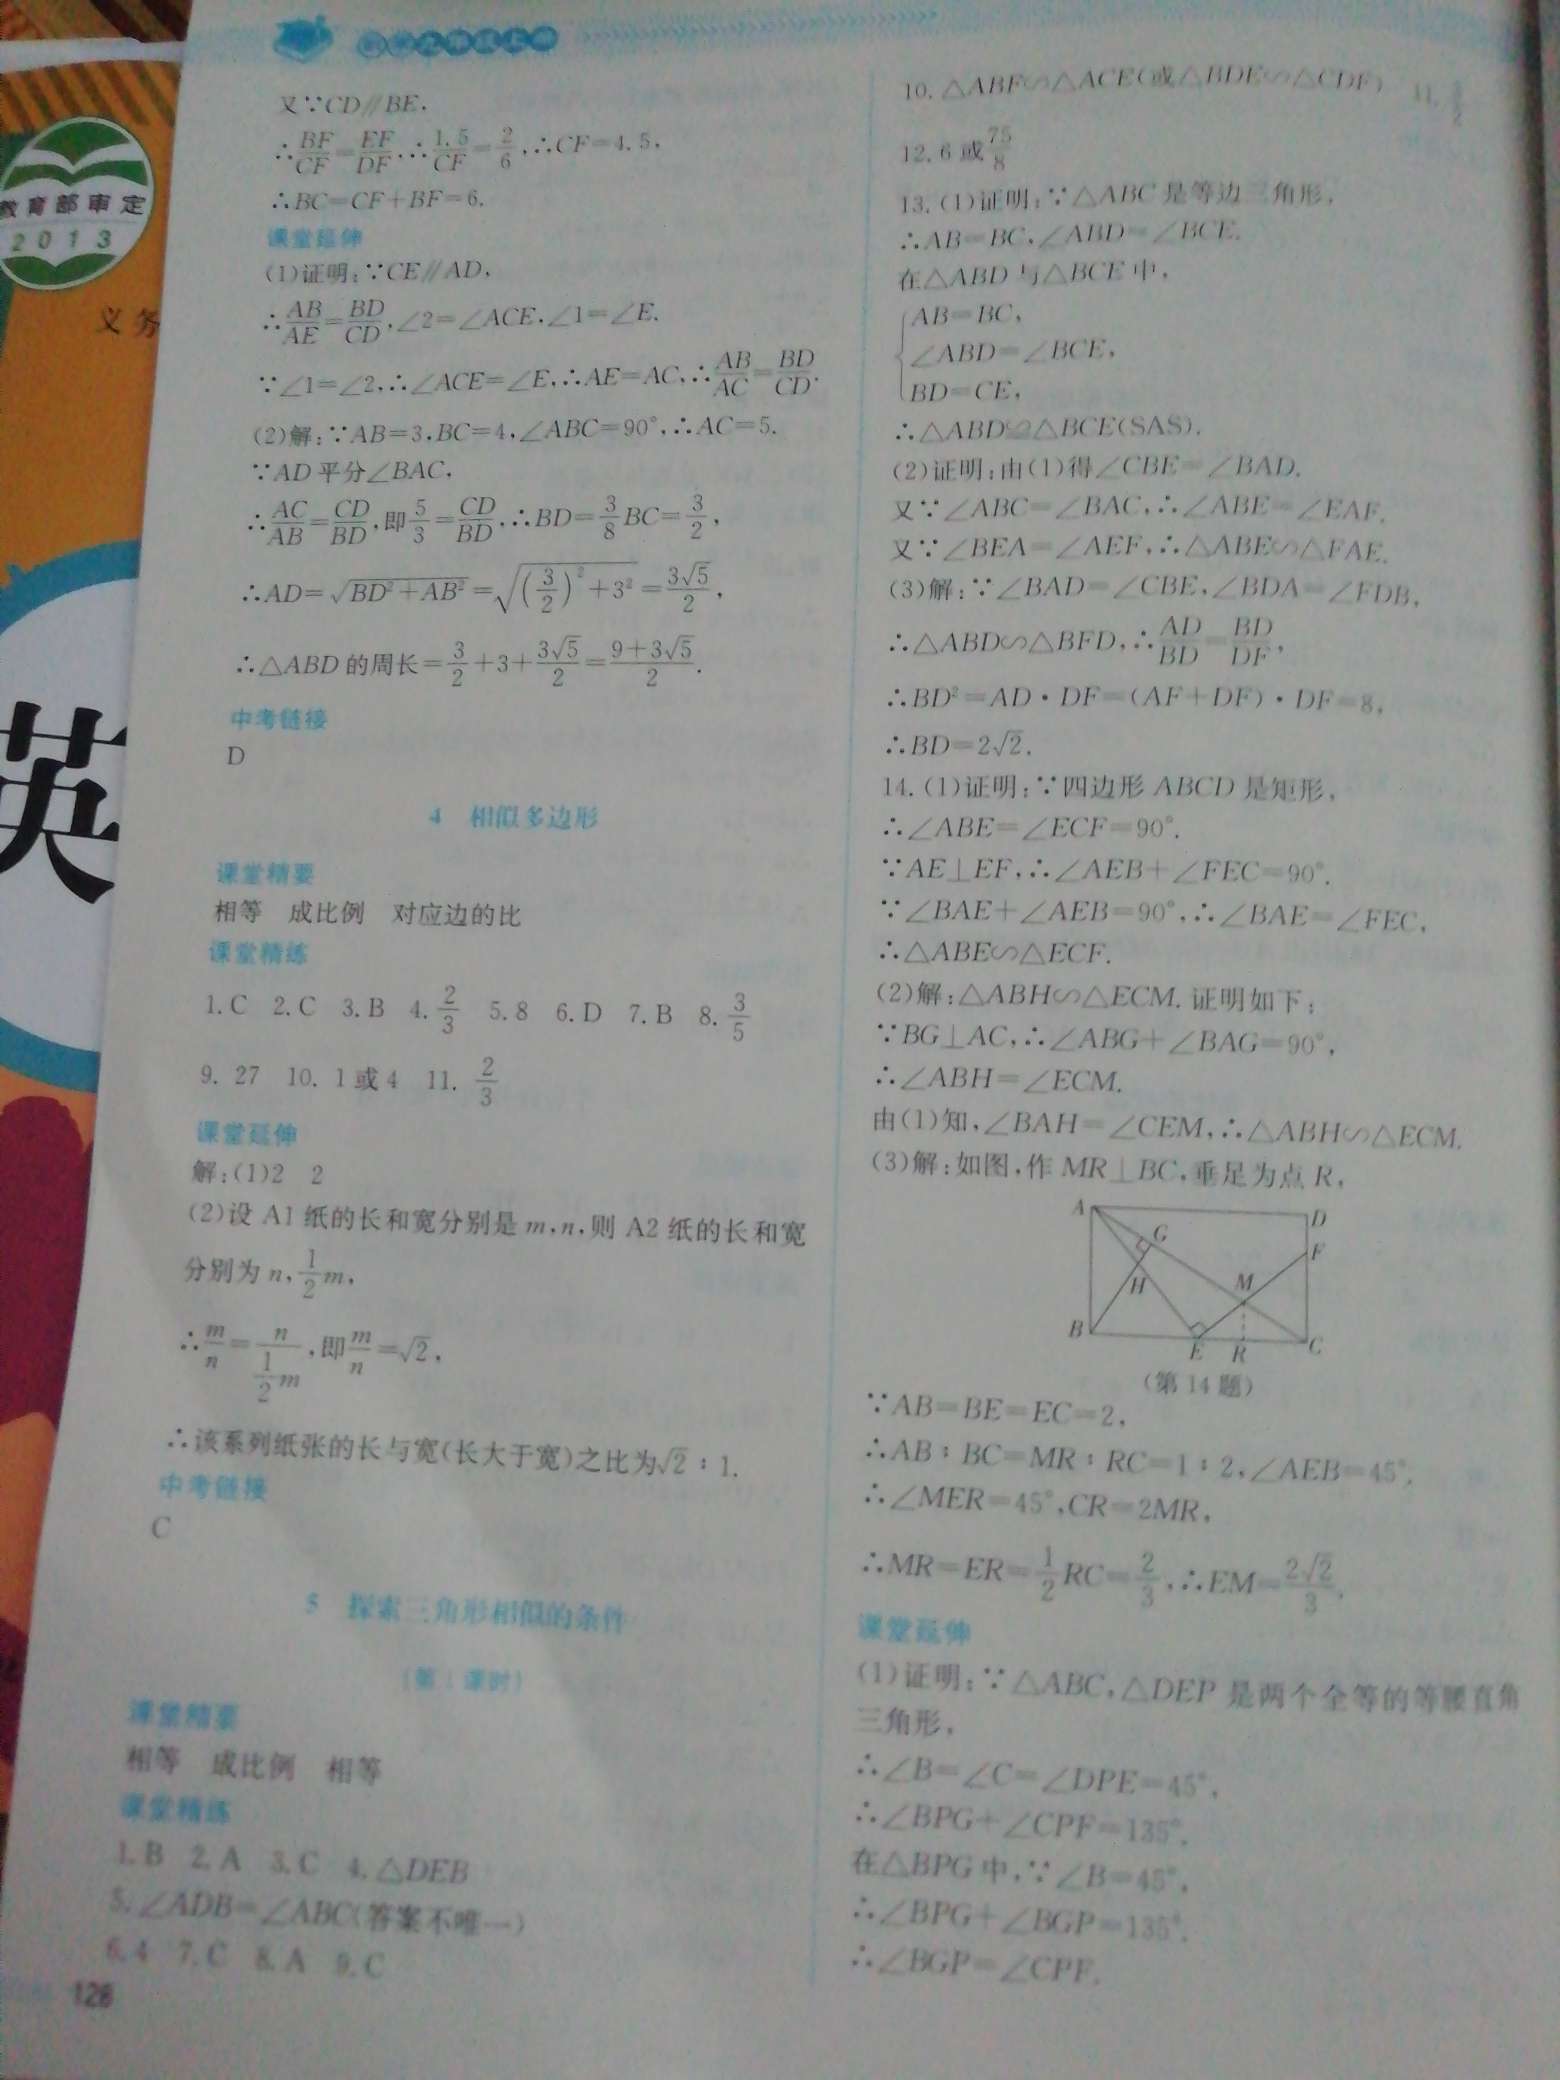 教育部审定
2013
义务
英
又∵CD∥BE,
∴BF/CF=EF/DF,∴1.5/CF=2/6,∴CF=4.5,
∴BC=CF+BF=6.
课堂延伸
(1)证明:∵CE∥AD,
∴AB/AE=BD/CD,∠2=∠ACE,∠1=∠E.
∵∠1=∠2,∴∠ACE=∠E,∴AE=AC,∴AB/AC=BD/CD.
(2)解:∵AB=3,BC=4,∠ABC=90°,∴AC=5.
∵AD平分∠BAC,
∴AC/AB=CD/BD,即5/3=CD/BD,∴BD=3/8BC=3/2,
∴AD=√(BD²+AB²)=√((3/2)²+3²)=3√5/2,
∴△ABD的周长=3/2+3+3√5/2=(9+3√5)/2.
中考链接
D
4 相似多边形
课堂精要
相等 成比例 对应边的比
课堂精练
1.C 2.C 3.B 4.2/3 5.8 6.D 7.B 8.3/5
9. 27 10. 1或4 11. 2/3
课堂延伸
解:(1)2 2
(2)设A1纸的长和宽分别是m,n,则A2纸的长和宽
分别为n,1/2m,
∴m/n=n/(1/2m),即m/n=√2,
∴该系列纸张的长与宽(长大于宽)之比为√2∶1.
中考链接
C
5 探索三角形相似的条件
(第1课时)
课堂精要
相等 成比例 相等
课堂精练
1.B 2.A 3.C 4.△DEB
5.∠ADB=∠ABC(答案不唯一)
6.4 7.C 8.A 9.C
128
10.△ABF∽△ACE(或△BDE∽△CDF) 11.
12.6或75/8
13.(1)证明:∵△ABC是等边三角形,
∴AB=BC,∠ABD=∠BCE.
在△ABD与△BCE中,
AB=BC,
∠ABD=∠BCE,
BD=CE,
∴△ABD≌△BCE(SAS).
(2)证明:由(1)得∠CBE=∠BAD.
又∵∠ABC=∠BAC,∴∠ABE=∠EAF.
又∵∠BEA=∠AEF,∴△ABE∽△FAE.
(3)解:∵∠BAD=∠CBE,∠BDA=∠FDB,
∴△ABD∽△BFD,∴AD/BD=BD/DF,
∴BD²=AD·DF=(AF+DF)·DF=8,
∴BD=2√2.
14.(1)证明:∵四边形ABCD是矩形,
∴∠ABE=∠ECF=90°.
∵AE⊥EF,∴∠AEB+∠FEC=90°.
∵∠BAE+∠AEB=90°,∴∠BAE=∠FEC,
∴△ABE∽△ECF.
(2)解:△ABH∽△ECM.证明如下:
∵BG⊥AC,∴∠ABG+∠BAG=90°,
∴∠ABH=∠ECM.
由(1)知,∠BAH=∠CEM,∴△ABH∽△ECM.
(3)解:如图,作MR⊥BC,垂足为点R,
A D
G F
H M
B E R C
(第14题)
∵AB=BE=EC=2,
∴AB∶BC=MR∶RC=1∶2,∠AEB=45°,
∴∠MER=45°,CR=2MR,
∴MR=ER=1/2RC=2/3,∴EM=2√2/3.
课堂延伸
(1)证明:∵△ABC,△DEP是两个全等的等腰直角
三角形,
∴∠B=∠C=∠DPE=45°,
∴∠BPG+∠CPF=135°.
在△BPG中,∵∠B=45°,
∴∠BPG+∠BGP=135°,
∴∠BGP=∠CPF.